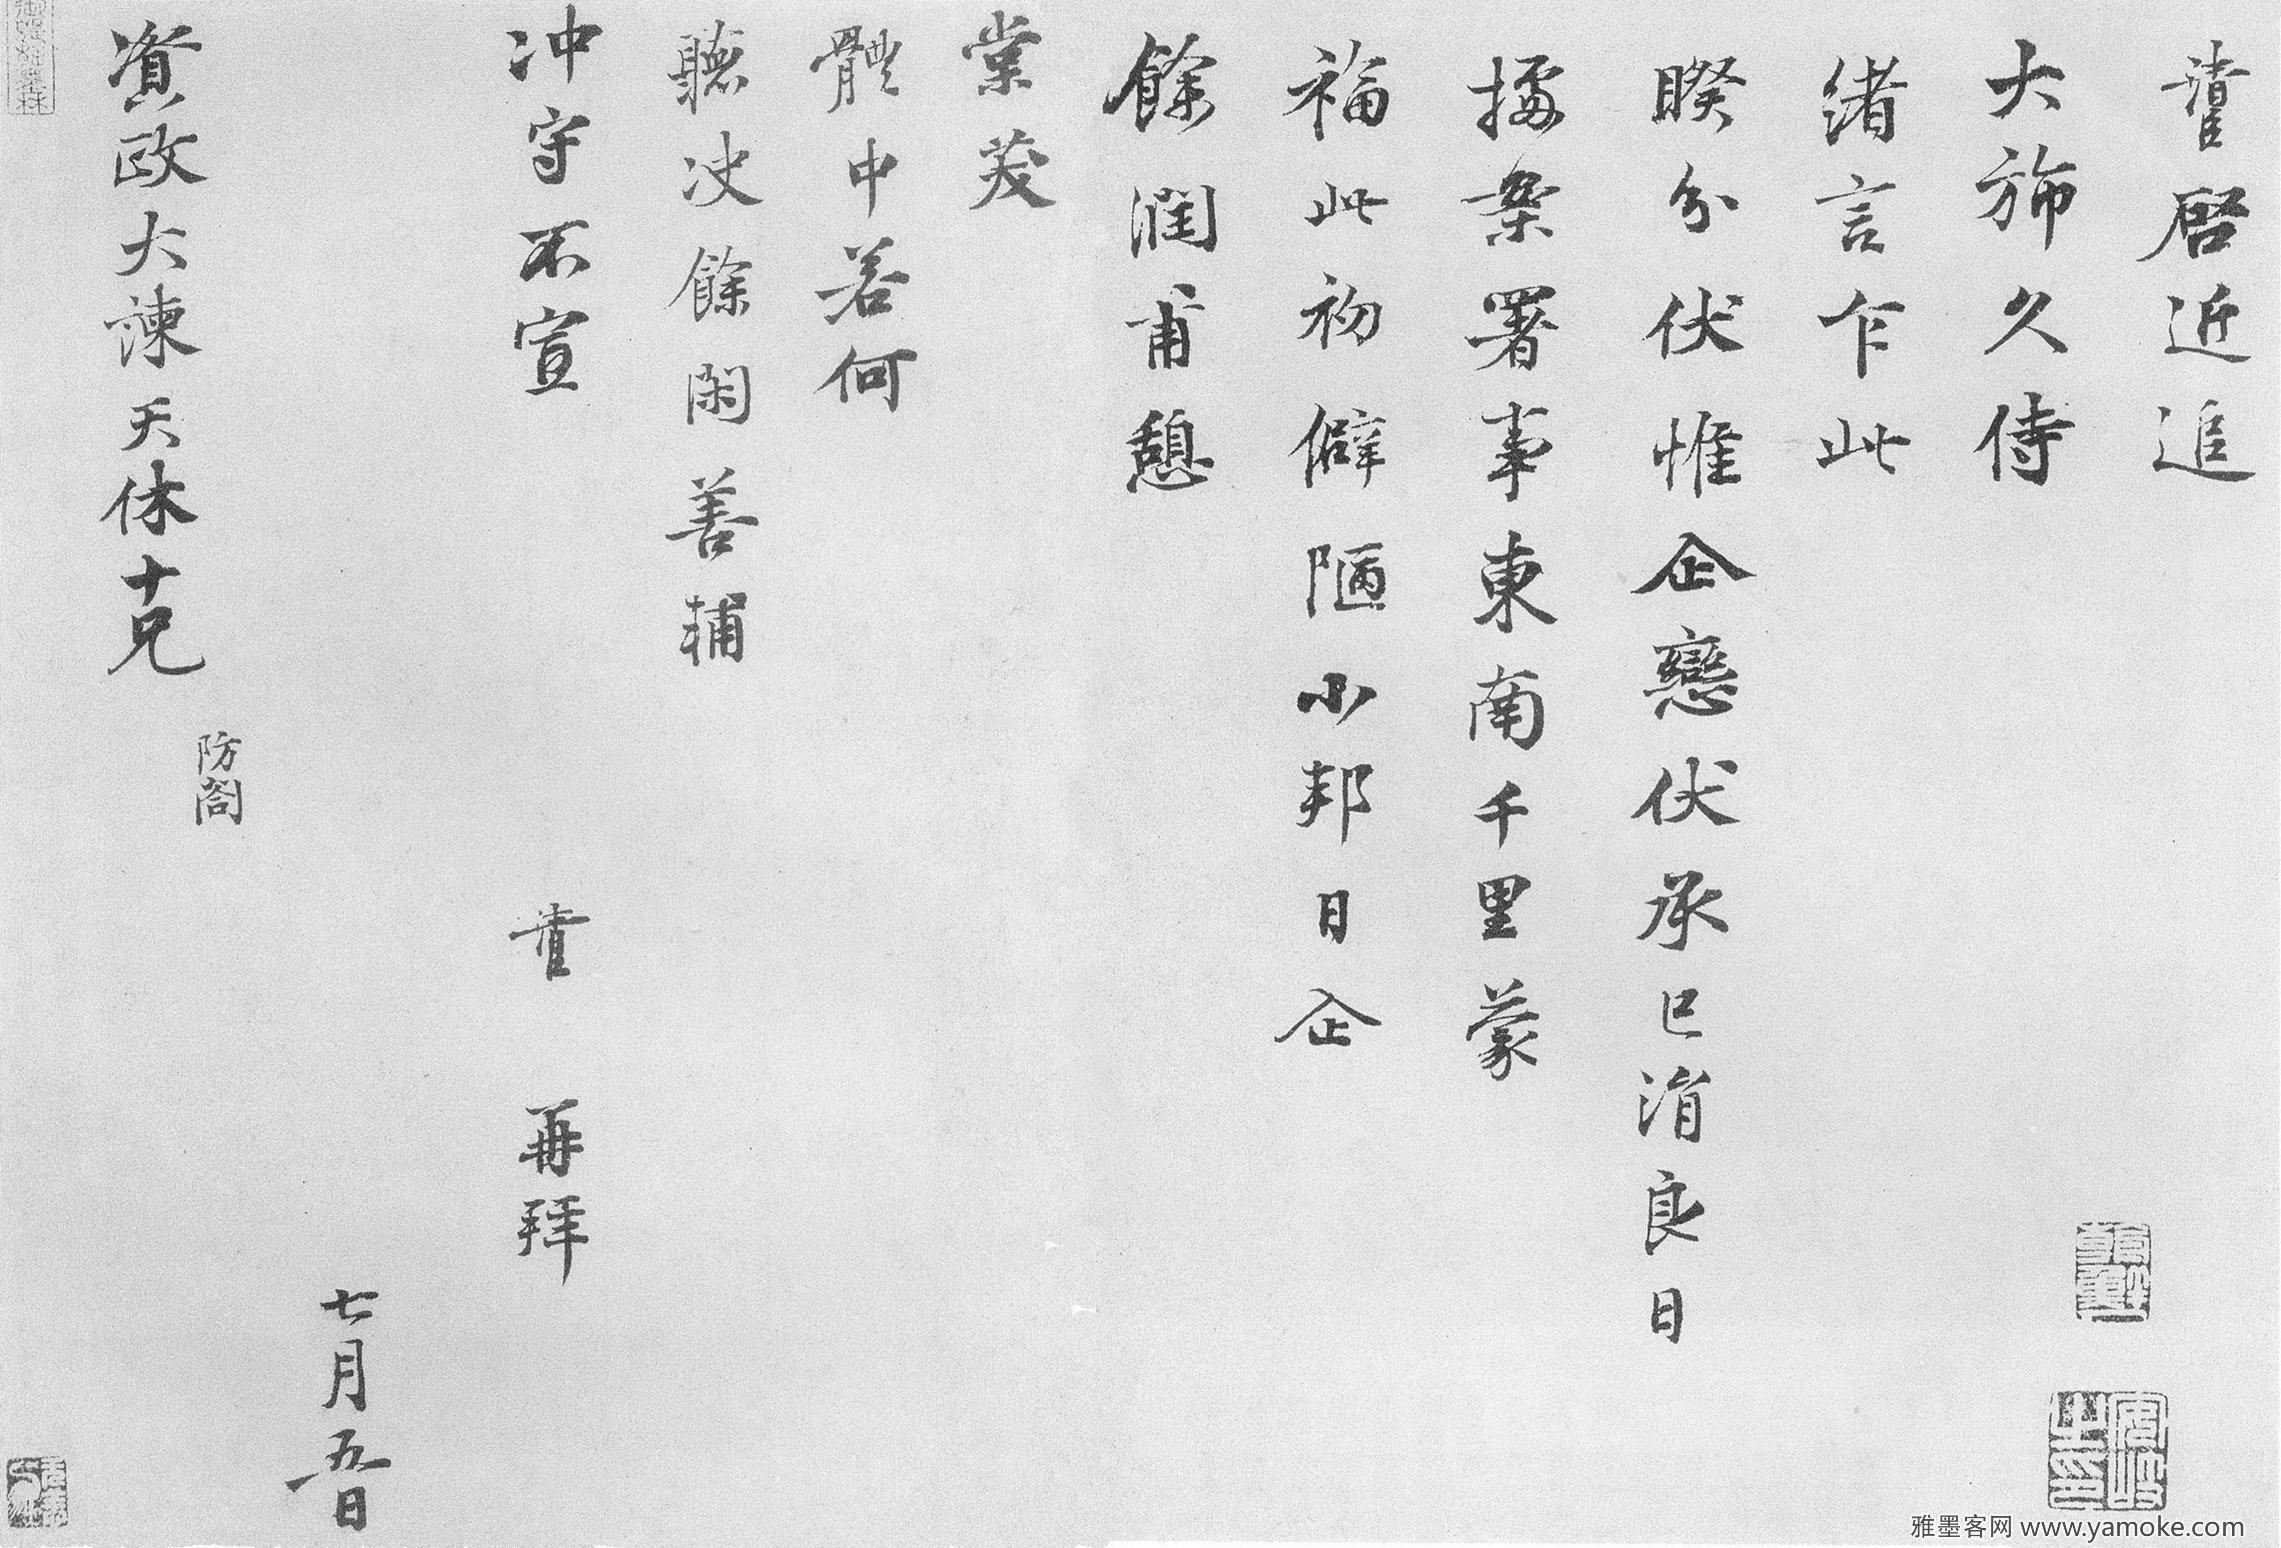 啓近追
大旆久侍
緒言乍此
暌分伏惟企戀伏承已涓良日
據案署事東南千里蒙
福此初僻陋小邦日企
餘潤甫憩
棠茇
體中若何
聽決餘閑善輔
冲守不宣
再拜
七月五日
資政大諫天休十兄
防閤
雅墨客网 www.yamoke.com